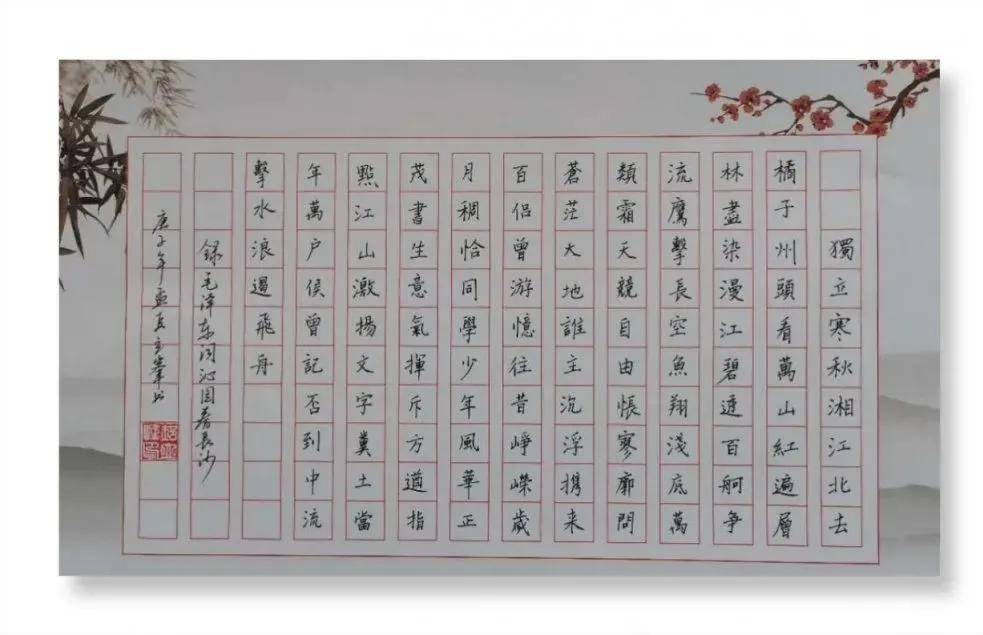 獨立寒秋湘江北去
橘子州頭看萬山紅遍層
林盡染漫江碧透百舸争
流鷹擊長空魚翔淺底萬
類霜天競自由悵寥廓問
蒼茫大地誰主沉浮携来
百侣曾游憶往昔崢嶸歲
月稠恰同學少年風華正
茂書生意氣揮斥方遒指
點江山激揚文字糞土當
年萬户侯曾記否到中流
擊水浪遏飛舟
録毛泽东词沁园春長沙
庚子年孟夏